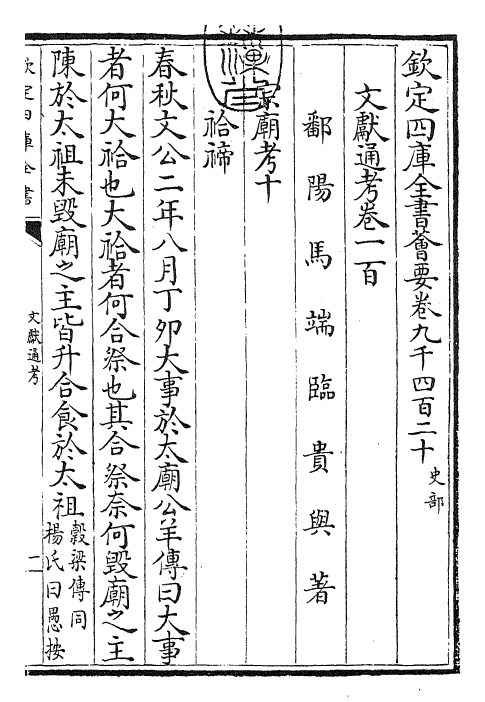 欽定四庫全書薈要卷九千四百二十 史部
文獻通考卷一百
鄱陽馬端臨貴與著
宗廟考十
祫禘
春秋文公二年八月丁卯大事於太廟公羊傳曰大事
者何大祫也大祫者何合祭也其合祭奈何毀廟之主
陳於太祖未毀廟之主皆升合食於太祖 穀梁傳同
楊氏曰愚按
欽定四庫全書
文獻通考
一